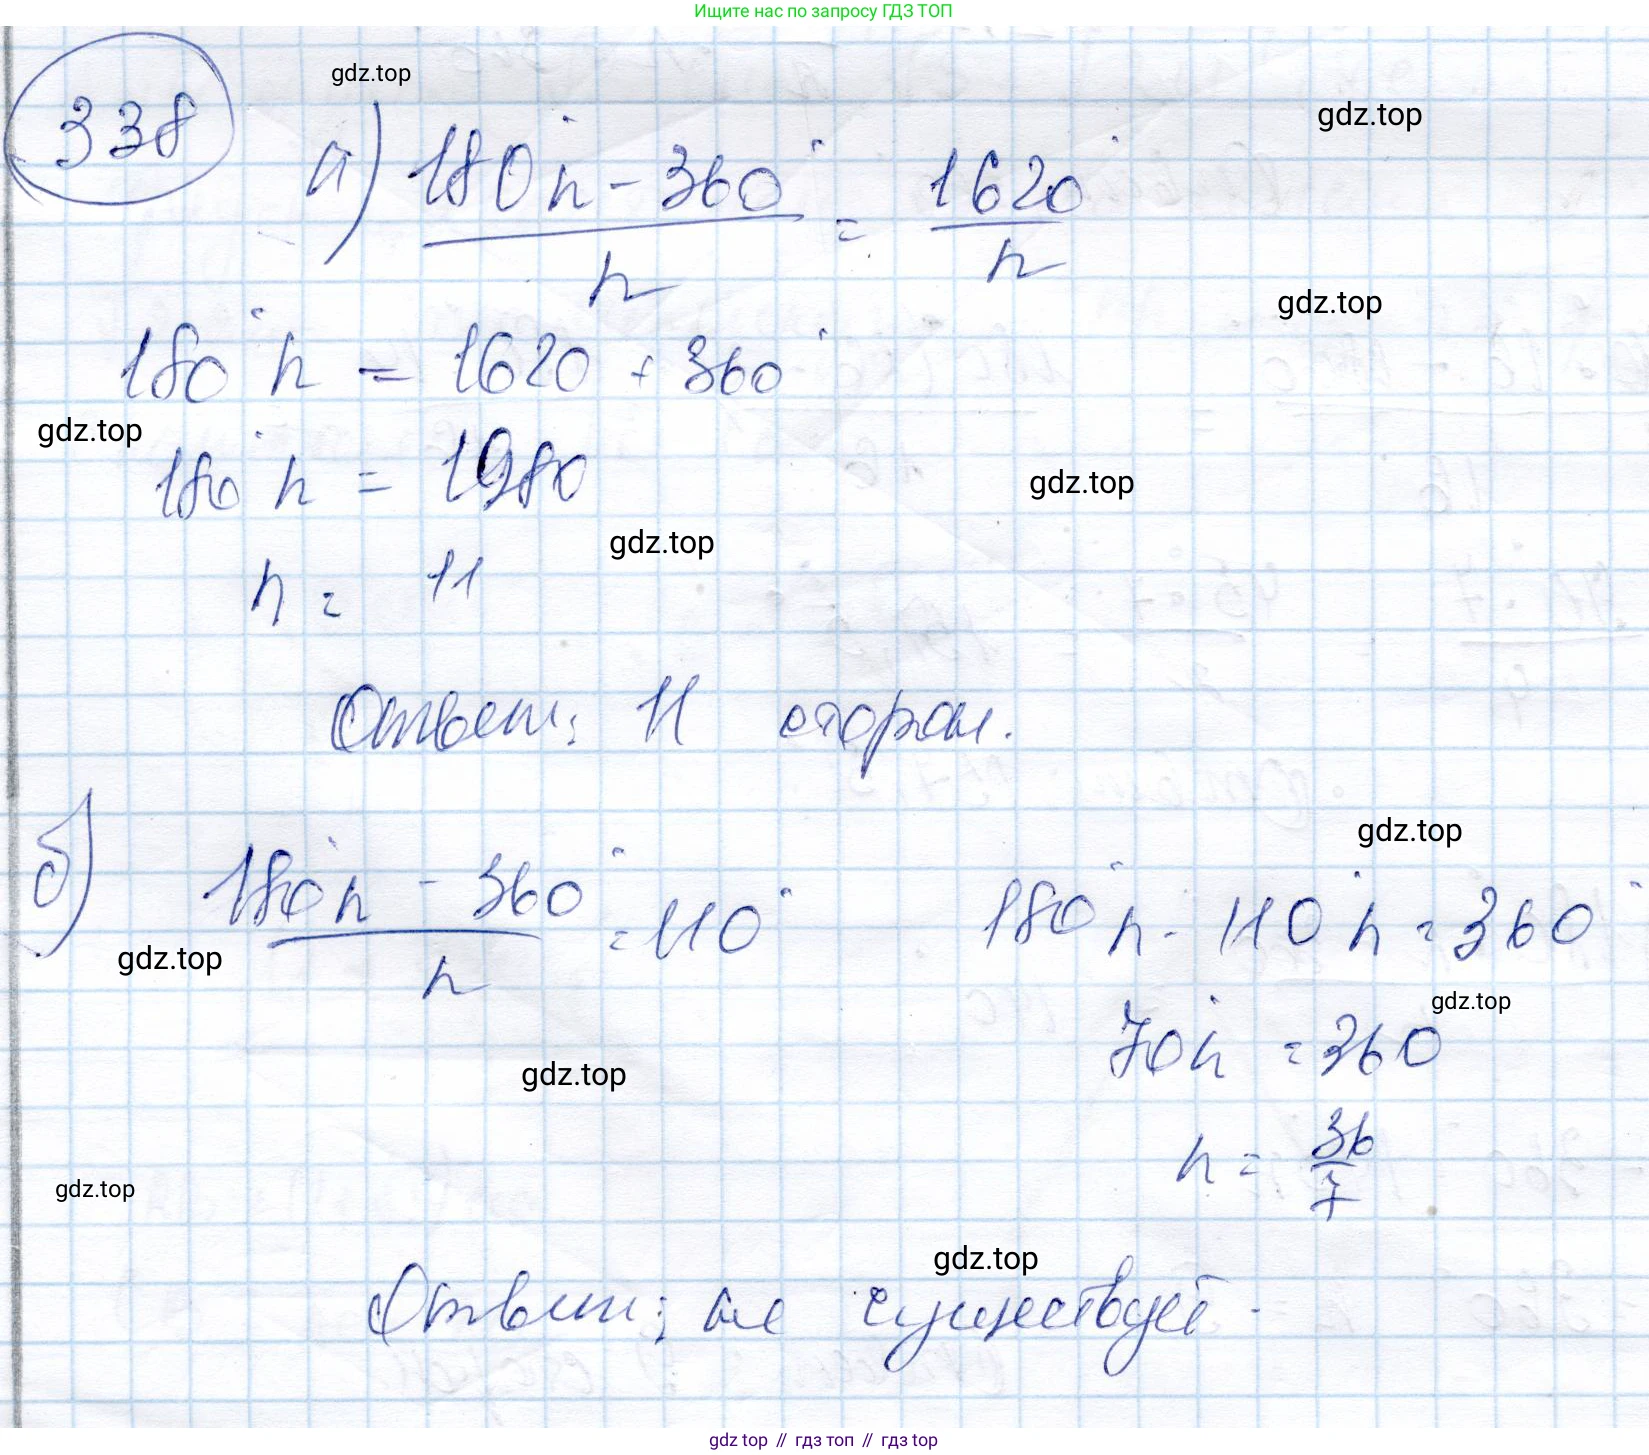 Ищите нас по запросу ГДЗ ТОП
338
gdz.top
gdz.top
а) (180°n - 360°)/n = 1620°/n
gdz.top
180°n = 1620 + 360°
gdz.top
180°n = 1980
gdz.top
gdz.top
n = 11
Ответ: 11 сторон.
gdz.top
б) (180°n - 360°)/n = 110° 180°n - 110°n = 360°
gdz.top
gdz.top
70°n = 360
gdz.top
n = 36/7
gdz.top
gdz.top
Ответ: не существует.
gdz.top // гдз топ // гдз top